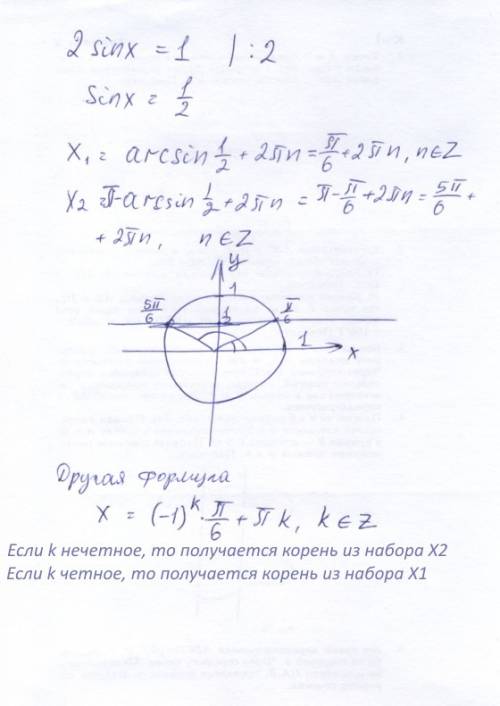 2 sinx = 1 | : 2
Sinx = 1/2
X₁ = arcsin 1/2 + 2πn = π/6 + 2πn, n∈Z
X₂ = π-arcsin 1/2 + 2πn = π - π/6 + 2πn = 5π/6 +
+ 2πn, n∈Z
y
1
5π/6
1/2
π/6
1
x
Другая формула
X = (-1)ᵏ · π/6 + πk, k∈Z
Если k нечетное, то получается корень из набора X2
Если k четное, то получается корень из набора X1